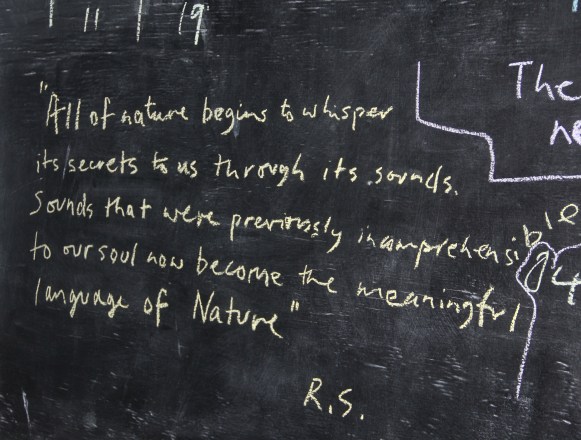 11 19
The
ne
"All of nature begins to whisper
its secrets to us through its sounds.
Sounds that were previously incomprehensible
to our soul now become the meaningful
language of Nature"
4
R.S.